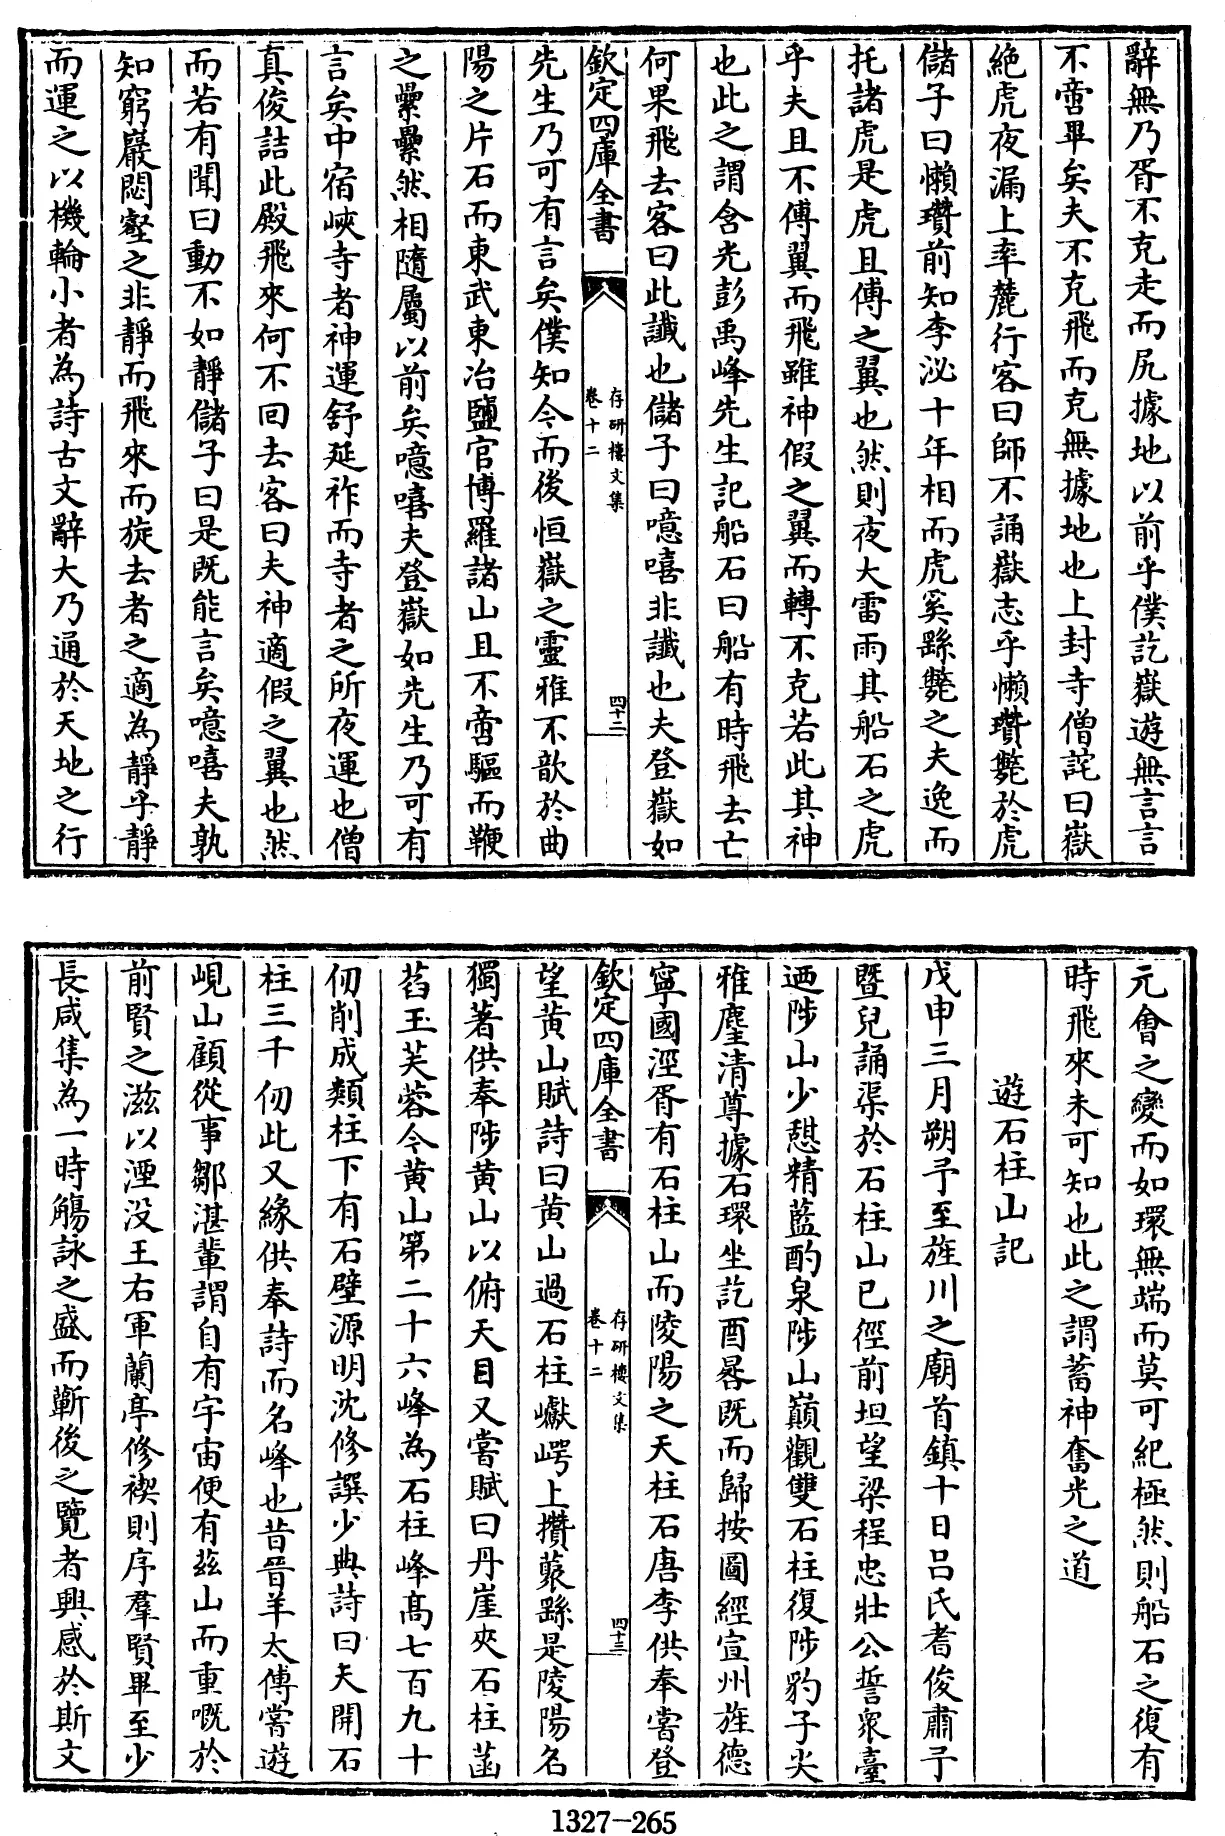 辭無乃胥不克走而尻據地以前乎僕訖嶽遊無言言
不啻畢矣夫不克飛而克無據地也上封寺僧詫曰嶽
絶虎夜漏上率麓行客曰師不誦嶽志乎懶瓚斃於虎
儲子曰懶瓚前知李泌十年相而虎奚繇斃之夫逸而
托諸虎是虎且傅之翼也然則夜大雷雨其船石之虎
乎夫且不傅翼而飛雖神假之翼而轉不克若此其神
也此之謂含光彭禹峰先生記船石曰船有時飛去亡
何果飛去客曰此讖也儲子曰噫嘻非讖也夫登嶽如
欽定四庫全書
存研樓文集
卷十二
四十二
先生乃可有言矣僕知今而後恒嶽之靈雅不歆於曲
陽之片石而東武東冶鹽官博羅諸山且不啻驅而鞭
之纍纍然相隨屬以前矣噫嘻夫登嶽如先生乃可有
言矣中宿峽寺者神運舒延祚而寺者之所夜運也僧
真俊詰此殿飛來何不回去客曰夫神適假之翼也然
而若有聞曰動不如靜儲子曰是既能言矣噫嘻夫孰
知窮巖悶壑之非靜而飛來而旋去者之適為靜乎靜
而運之以機輪小者為詩古文辭大乃通於天地之行
元會之變而如環無端而莫可紀極然則船石之復有
時飛來未可知也此之謂蓄神奮光之道
遊石柱山記
戊申三月朔予至旌川之廟首鎮十日呂氏耆俊肅予
暨兒誦渠於石柱山已徑前坦望梁程忠壯公誓衆臺
迺陟山少憇精藍酌泉陟山巔觀雙石柱復陟豹子尖
雅麈清尊據石環坐訖酉晷既而歸按圖經宣州旌德
寧國涇胥有石柱山而陵陽之天柱石唐李供奉嘗登
欽定四庫全書
存研樓文集
卷十二
四十三
望黄山賦詩曰黄山過石柱巘崿上攢藂繇是陵陽名
獨著供奉陟黄山以俯天目又嘗賦曰丹崖夾石柱菡
萏玉芙蓉今黄山第二十六峰為石柱峰髙七百九十
仞削成類柱下有石壁源明沈修譔少典詩曰天開石
柱三千仞此又緣供奉詩而名峰也昔晉羊太傅嘗遊
峴山顧從事鄒湛輩謂自有宇宙便有兹山而重嘅於
前賢之滋以湮没王右軍蘭亭修禊則序羣賢畢至少
長咸集為一時觴詠之盛而蘄後之覽者興感於斯文
1327-265